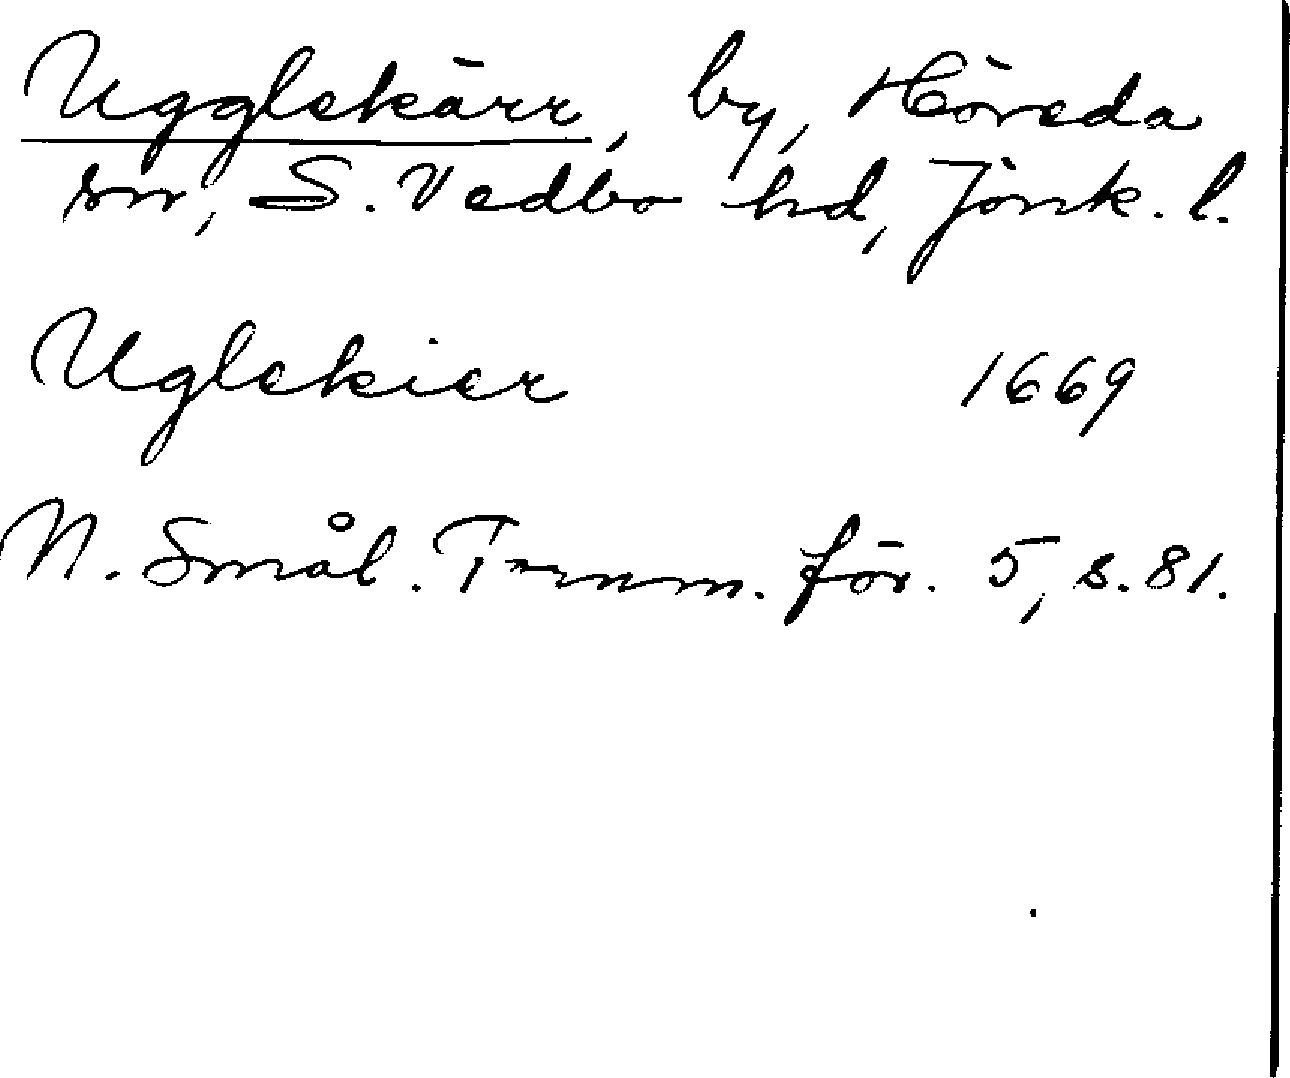 Ugglekärr, by, Höreda
sn, S. Vedbo hd, Jönk. l.
Uglekier 1669
N. Smål. Frnm. för. 5, s. 81.